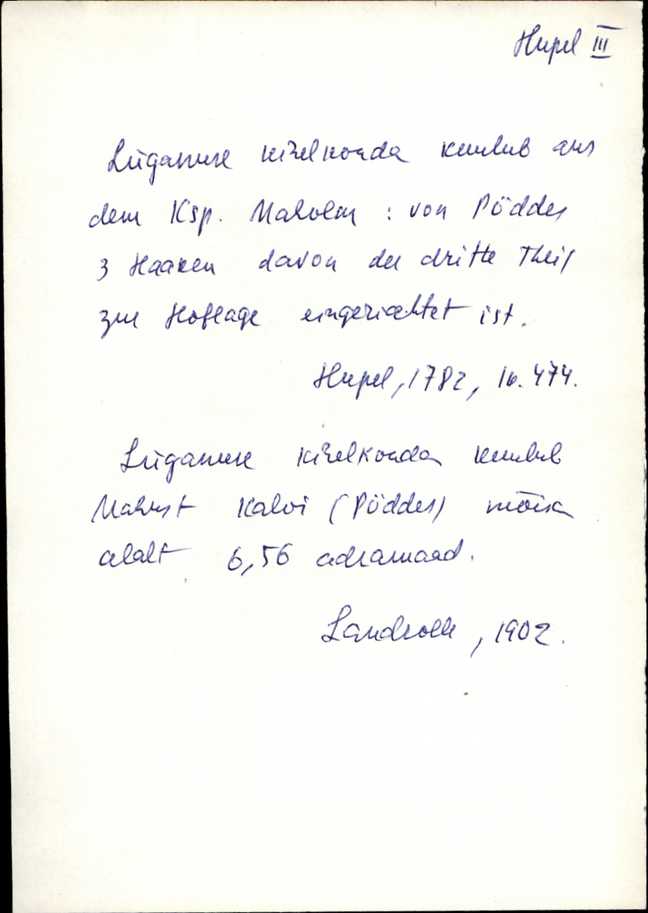 Hupel III
Lüganuse kihelkonda kuulub aus
dem Ksp. Maholm : von Pöddes
3 Haaken davon der dritte Theil
zur Hoflage eingerichtet ist.
Hupel, 1782, lk. 474.
Lüganuse kihelkonda kuulub
Mahust Kalvi (Pöddes) mõisa
alalt 6,56 adramaad.
Landrolle, 1902.